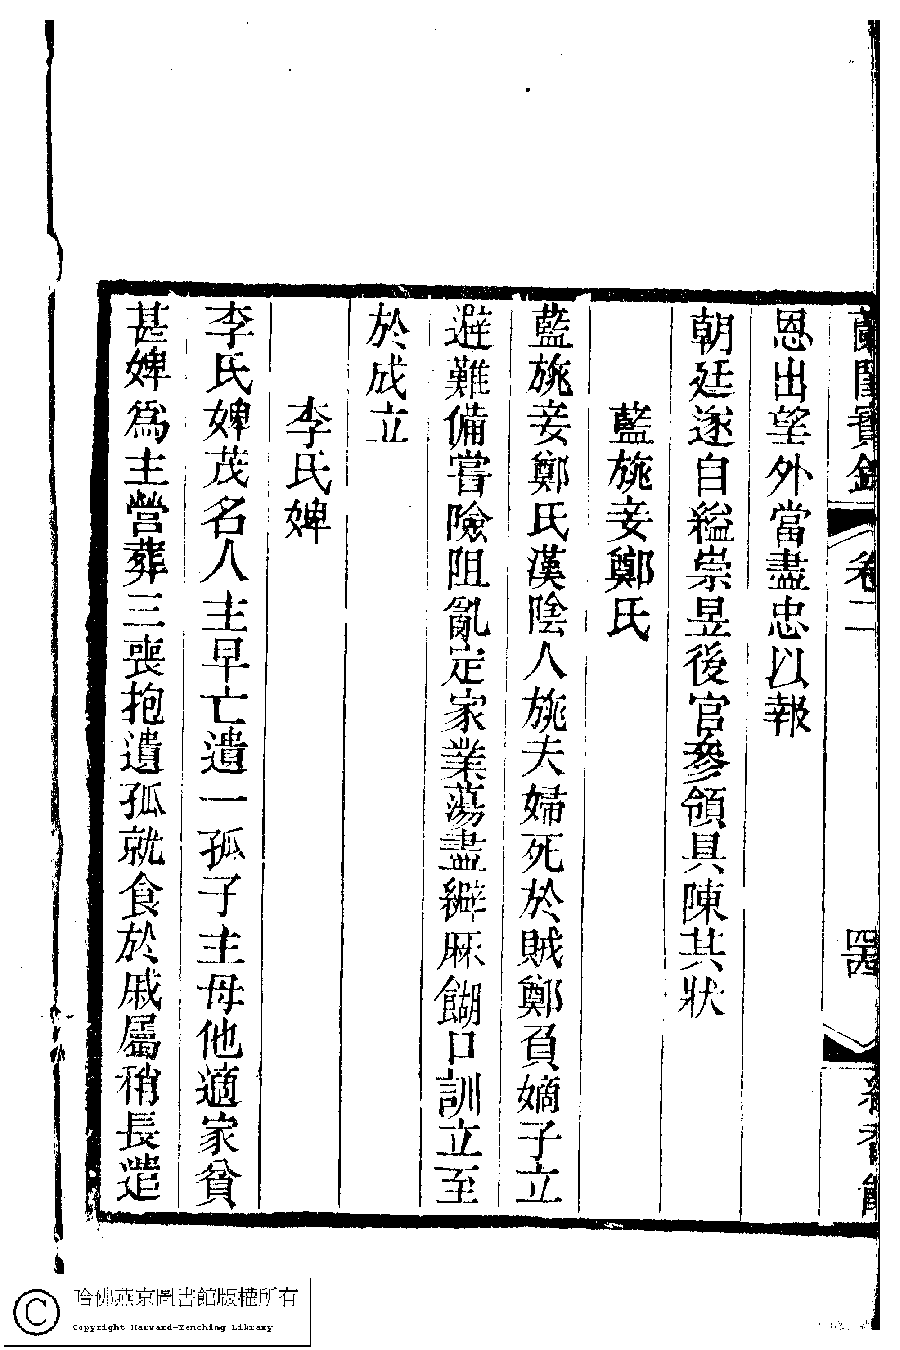 蘭閨寶錄 卷二 四
恩出望外當盡忠以報
朝廷遂自縊崇昱後官參領具陳其狀
藍旎妾鄭氏
藍旎妾鄭氏漢陰人旎夫婦死於賊鄭負嫡子立
避難備嘗險阻亂定家業蕩盡緶麻餬口訓立至
於成立
李氏婢
李氏婢茂名人主早亡遺一孤子主母他適家貧
甚婢為主營葬三喪抱遺孤就食於戚屬稍長遣
哈佛燕京圖書館版權所有
Copyright Harvard-Yenching Library